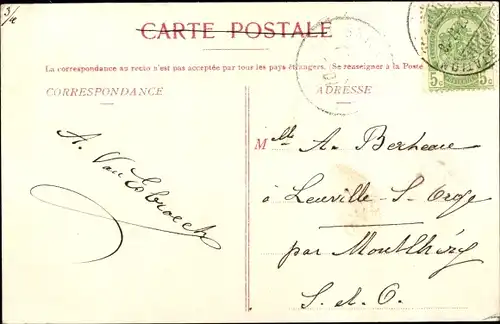 3/a
CARTE POSTALE
La correspondance au recto n'est pas acceptée par tous les pays étrangers. (Se renseigner à la Poste
CORRESPONDANCE
ADRESSE
5c 5c
A. Van
Mlle A. Bertheau
à Leuville-S-Orge
par Montlhéry
S. et O.